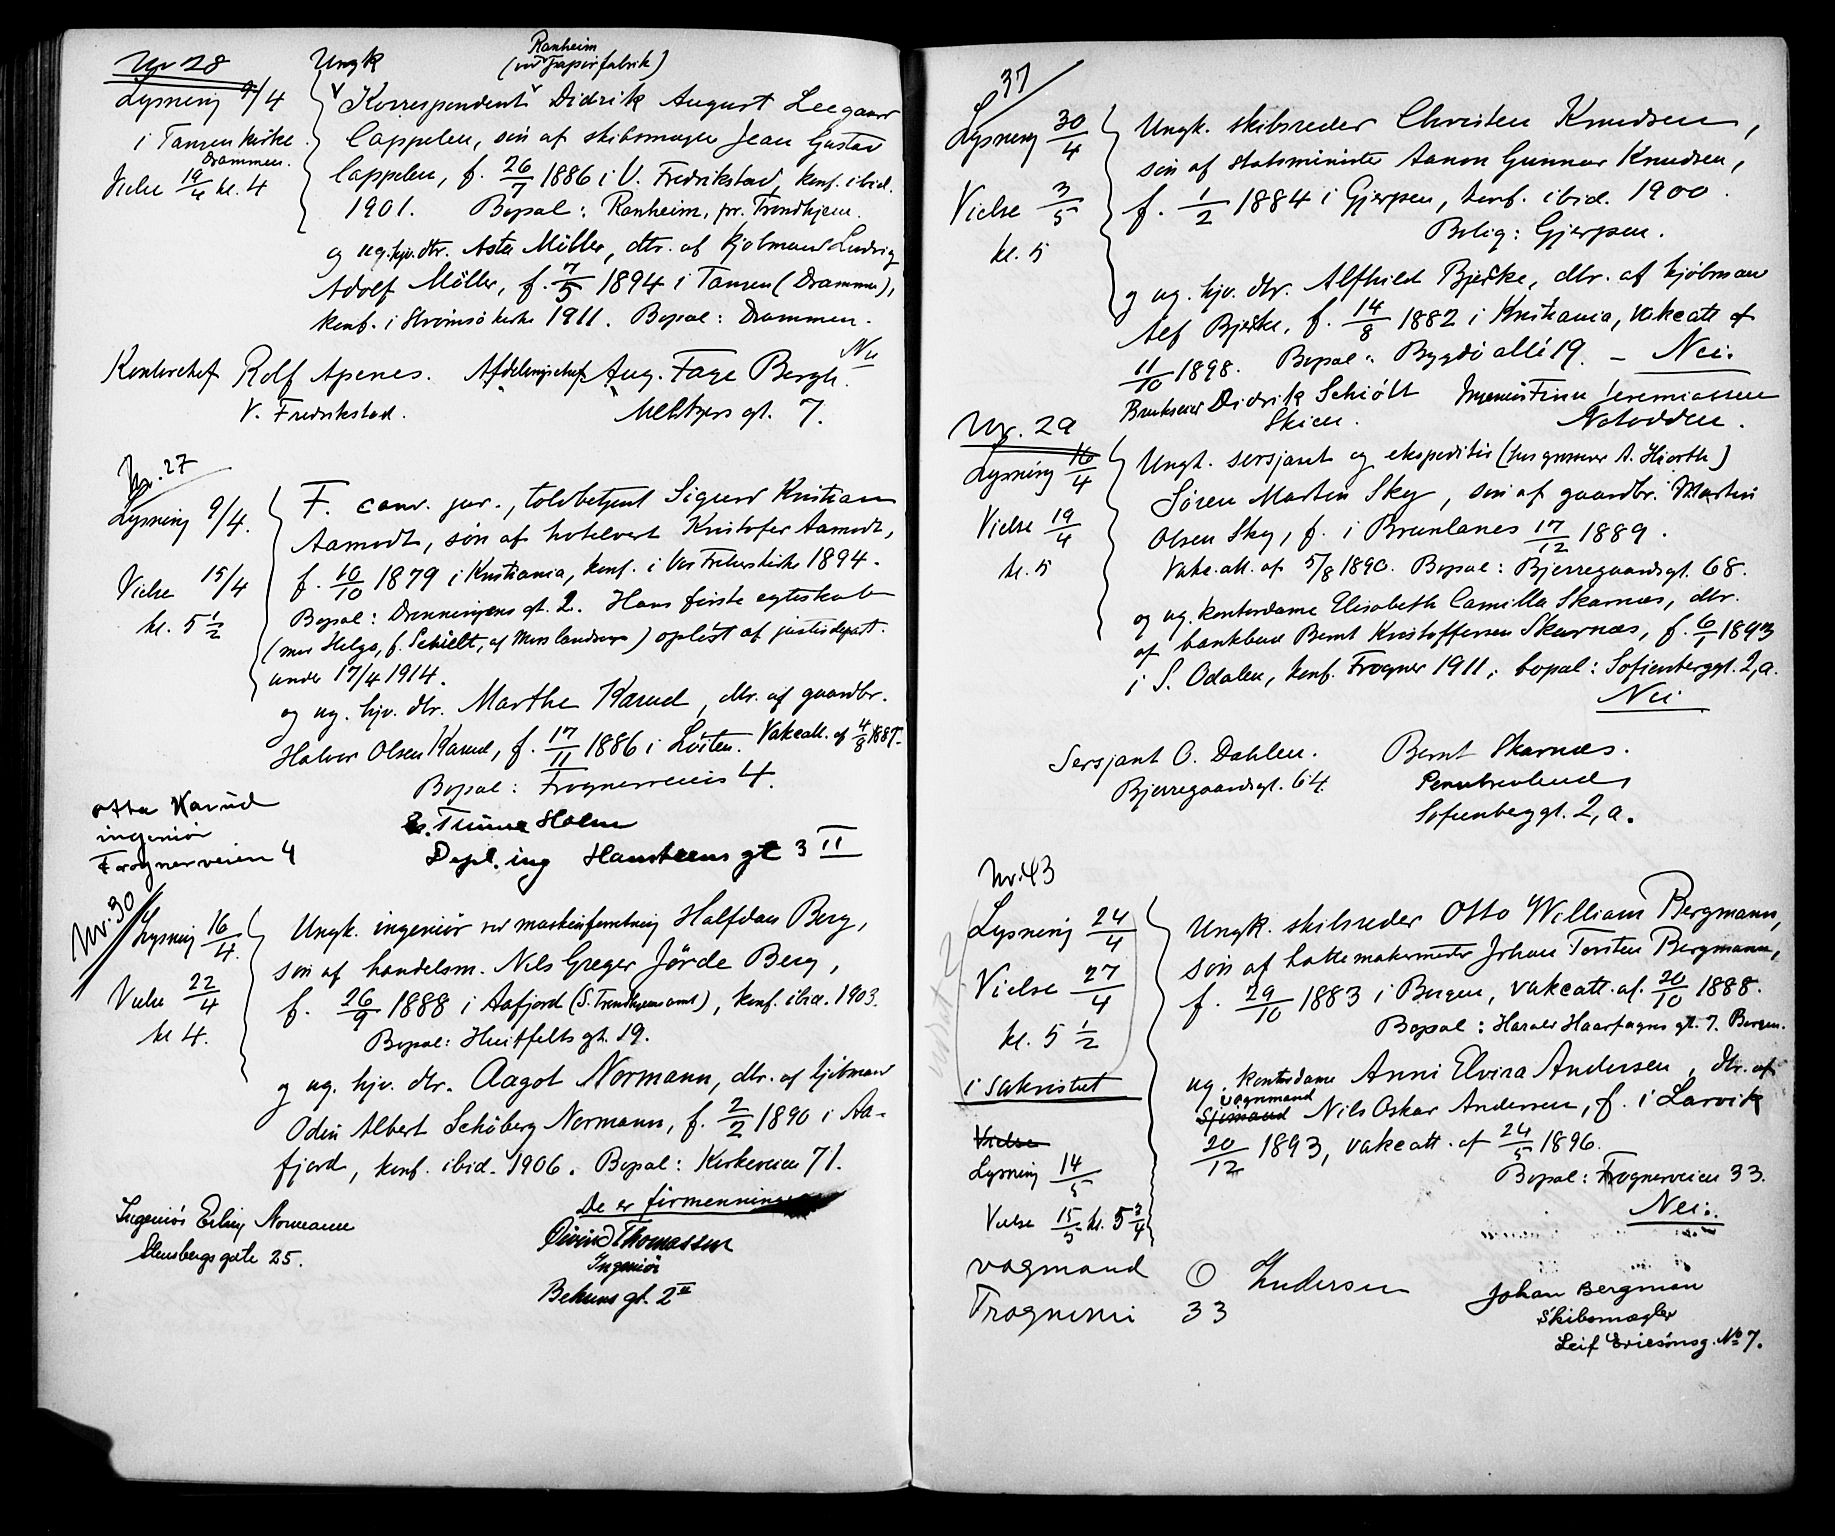 Nr 28
Ungk
Ranheim
(ved Papirfabrik)
Lysning 9/4
Korrespondent Didrik August Leegaard
i Tansen kirke
Drammen.
Cappelen, søn af skibsmægler Jean Gustav
Vielse 19/4 kl. 4
Cappelen, f. 26/7 1886 i V. Fredrikstad, konf. ibid.
1901. Bopæl: Ranheim, pr. Trondhjem.
og ug. hjv. dtr. Asta Möller, dtr. af kjøbmand Ludvig
Adolf Möller, f. 7/5 1894 i Tansen (Drammen),
konf. i Strømsø kirke 1911. Bopæl: Drammen.
Nei
Kontorchef Rolf Apenes. Afdelingschef Aug. Fage Bergh.
V. Fredrikstad. Meltzers gt. 7.
Nr. 27
Lysning 9/4.
F. cand. jur., toldbetjent Sigurd Kristian
Aamodt, søn af hotelvert Kristofer Aamodt,
Vielse 15/4
f. 10/10 1879 i Kristiania, konf. i Vor Frelsers kirke 1894.
kl. 5 1/2
Bopæl: Dronningens gt. 2. Hans første egteskab
(med Helga, f. Schiött, af Moss landsogn) opløst af justisdepart.
under 17/4 1914.
og ug. hjv. dtr. Marthe Karud, dtr. af gaardbr.
Halvor Olsen Karud, f. 17/11 1886 i Löiten. Vakcatt. af 4/8 1887.
Bopæl: Frognerveien 4.
Otto Karud
ingeniør
Frognerveien 4
E. Trinne Holm
Dipl. ing Hansteens gt 3 II
Nr. 30
Lysning 16/4.
Ungk. ingeniør ved maskinforretning Halfdan Berg,
søn af handelsm. Nils Greger Jörde Berg,
Vielse 22/4
f. 26/9 1888 i Aafjord (S. Trondhjems amt), konf. ibid. 1903.
kl 4.
Bopæl: Huitfeldts gt. 19.
og ug. hjv. dtr. Aagot Normann, dtr. af kjøbmand
Odin Albert Schöberg Normann, f. 2/2 1890 i Aa-
fjord, konf. ibid. 1906. Bopæl: Kirkeveien 71.
De er firmenninger
Ingeniør Erling Normann
Stensbergsgate 25.
Øivind Thomassen
Ingeniør
Behrens gt. 2 II
37
Lysning 30/4
Ungk. skibsreder Christen Knudsen,
søn af statsminister Aanon Gunnar Knudsen,
Vielse 3/5
f. 1/2 1884 i Gjerpen, konf. ibid. 1900.
kl. 5
Bolig: Gjerpen.
og ug. hjv. dtr. Alfhild Bjerke, dtr. af kjøbman
Alf Bjerke, f. 14/8 1882 i Kristiania, vakcatt af
11/10 1898. Bopæl: Bygdö allé 19. – Nei.
Brukseier Didrik Schiött Ingeniør Finn Jeremiassen
Skien. Notodden.
Nr. 29
Lysning 16/4
Ungk. sersjant og ekspeditør (hos grosserer A. Hiorth)
Søren Martin Sky, søn af gaardbr. Martin
Vielse 19/4
Olsen Sky, f. i Brunlanes 17/12 1889.
kl. 5
Vakc.att. af 5/8 1890. Bopæl: Bjerregaardsgt. 68.
og ug. kontordame Elisabeth Camilla Skarnæs, dtr.
af bankbud Bernt Kristoffersen Skarnæs, f. 6/1 1893
i S. Odalen, konf. Frogner 1911; bopæl: Sofienberggt. 2,a.
Nei
Sersjant O. Dahlen. Bernt Skarnæs.
Bjerregaardsgt. 64.
Sofienberggt. 2,a.
Nr. 43
Lysning 24/4
Ungk. skibsreder Otto William Bergmann,
søn af hattemakermester Johan Torsten Bergmann,
Vielse 27/4
f. 29/10 1883 i Bergen, vakcatt. af. 20/10 1888.
kl. 5 1/2
Bopæl: Harald Haarfagres gt. 7. Bergen.
i sakristiet
ug. kontordame Anni Elvira Andersen, dtr. af
vognmand
Sjømand Nils Oskar Andersen, f. i Larvik
Vielse
20/12 1893, vakcatt. af 24/5 1896.
Lysning 14/5
Bopæl: Frognerveien 33.
Vielse 15/5 kl. 5 3/4
Nei.
vogmand O Andersen
33
Johan Bergman
Skibsmægler
Leif Ericsonsg. No 7.